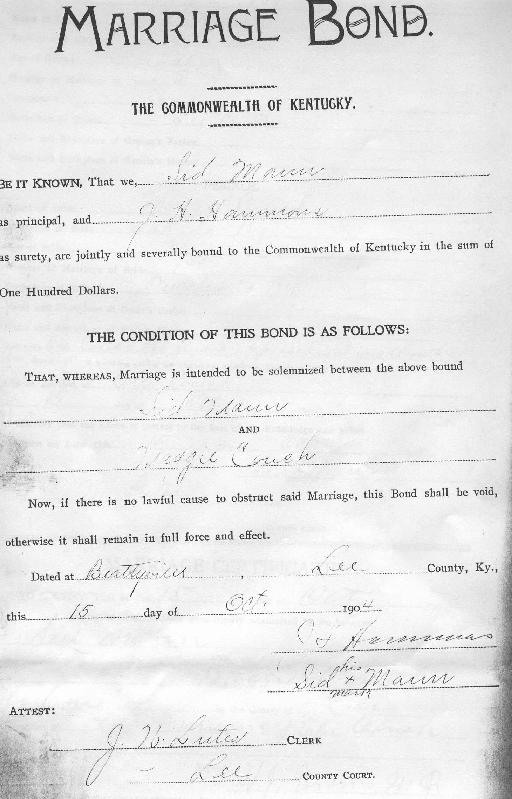 MARRIAGE BOND.
THE COMMONWEALTH OF KENTUCKY.
BE IT KNOWN, That we, Sid Mann
as principal, and J H Hammons
as surety, are jointly and severally bound to the Commonwealth of Kentucky in the sum of
One Hundred Dollars.
THE CONDITION OF THIS BOND IS AS FOLLOWS:
THAT, WHEREAS, Marriage is intended to be solemnized between the above bound
Sid Mann
AND
Couch
Now, if there is no lawful cause to obstruct said Marriage, this Bond shall be void,
otherwise it shall remain in full force and effect.
Dated at Beattyville, Lee County, Ky.,
this 15 day of Oct. 1904
Hammons
his
Sid x Mann
mark
ATTEST:
J. W. Lutes CLERK
Lee COUNTY COURT.